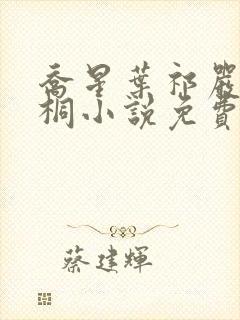 喬星葉祁嚴
桐小說免費
蔡建輝